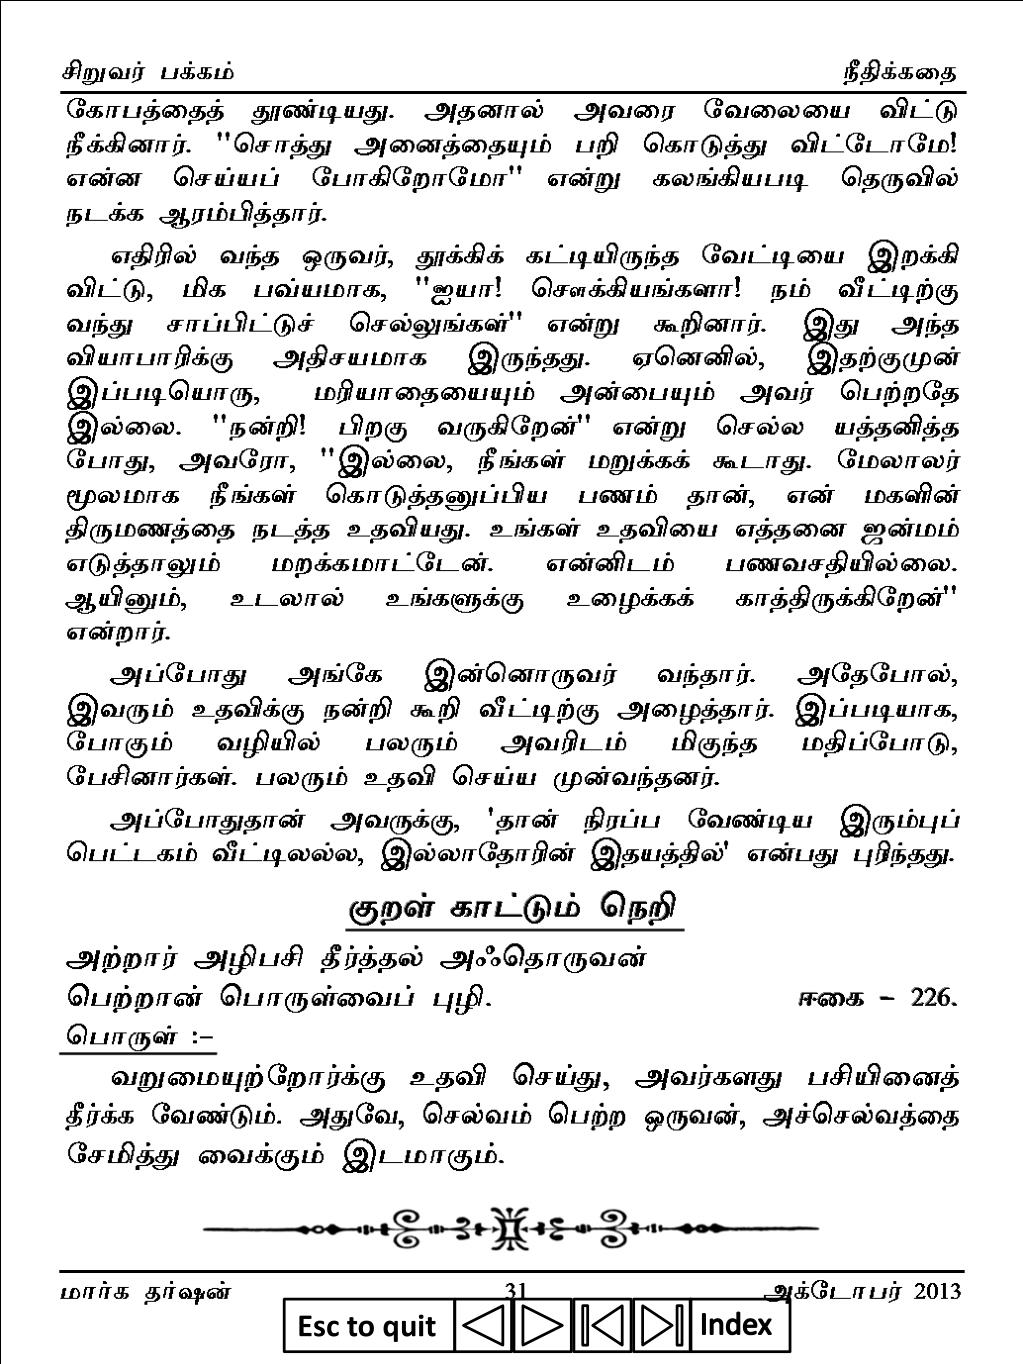 சிறுவர் பக்கம் நீதிக்கதை
கோபத்தைத் தூண்டியது. அதனால் அவரை வேலையை விட்டு
நீக்கினார். "சொத்து அனைத்தையும் பறி கொடுத்து விட்டோமே!
என்ன செய்யப் போகிறோமோ" என்று கலங்கியபடி தெருவில்
நடக்க ஆரம்பித்தார்.
எதிரில் வந்த ஒருவர், தூக்கிக் கட்டியிருந்த வேட்டியை இறக்கி
விட்டு, மிக பவ்யமாக, "ஐயா! சௌக்கியங்களா! நம் வீட்டிற்கு
வந்து சாப்பிட்டுச் செல்லுங்கள்" என்று கூறினார். இது அந்த
வியாபாரிக்கு அதிசயமாக இருந்தது. ஏனெனில், இதற்குமுன்
இப்படியொரு, மரியாதையையும் அன்பையும் அவர் பெற்றதே
இல்லை. "நன்றி! பிறகு வருகிறேன்" என்று செல்ல யத்தனித்த
போது, அவரோ, "இல்லை, நீங்கள் மறுக்கக் கூடாது. மேலாலர்
மூலமாக நீங்கள் கொடுத்தனுப்பிய பணம் தான், என் மகளின்
திருமணத்தை நடத்த உதவியது. உங்கள் உதவியை எத்தனை ஜன்மம்
எடுத்தாலும் மறக்கமாட்டேன். என்னிடம் பணவசதியில்லை.
ஆயினும், உடலால் உங்களுக்கு உழைக்கக் காத்திருக்கிறேன்"
என்றார்.
அப்போது அங்கே இன்னொருவர் வந்தார். அதேபோல்,
இவரும் உதவிக்கு நன்றி கூறி வீட்டிற்கு அழைத்தார். இப்படியாக,
போகும் வழியில் பலரும் அவரிடம் மிகுந்த மதிப்போடு,
பேசினார்கள். பலரும் உதவி செய்ய முன்வந்தனர்.
அப்போதுதான் அவருக்கு, 'தான் நிரப்ப வேண்டிய இரும்புப்
பெட்டகம் வீட்டிலல்ல, இல்லாதோரின் இதயத்தில்' என்பது புரிந்தது.
குறள் காட்டும் நெறி
அற்றார் அழிபசி தீர்த்தல் அஃதொருவன்
பெற்றான் பொருள்வைப் புழி. ஈகை – 226.
பொருள் :–
வறுமையுற்றோர்க்கு உதவி செய்து, அவர்களது பசியினைத்
தீர்க்க வேண்டும். அதுவே, செல்வம் பெற்ற ஒருவன், அச்செல்வத்தை
சேமித்து வைக்கும் இடமாகும்.
மார்க தர்ஷன் 31 அக்டோபர் 2013
Esc to quit Index